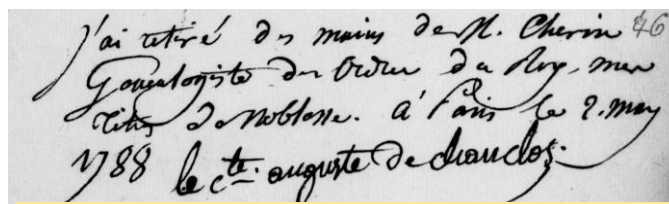 j'ai retiré des mains de M. Cherin 46
Genealogiste des Ordres du Roy, mes
titres de Noblesse. a Paris le 2. may
1788 le cte. auguste de chanclos.